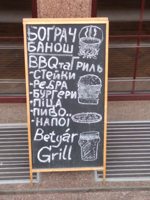 БОГРАЧ
БАНОШ
BBQ та ГРИЛЬ
-СТЕЙКИ
-РЕБРА
-БУРГЕРИ
-ПІЦА
-ПИВО..
-НАПОЇ
Betyár
Grill